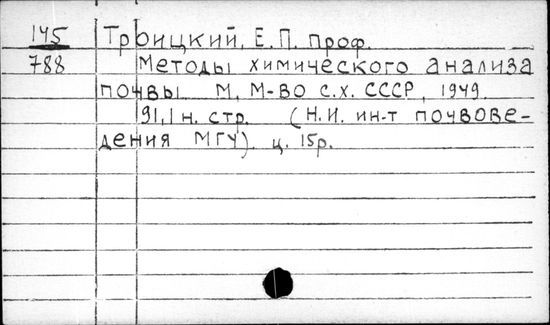 145 Троицкий, Е.П. проф.
788 Методы химического анализа
почвы М, М-во с.х. СССР, 1949.
91,1 н. стр. (Н.И. ин-т почвове-
дения МГУ). ц. 15р.